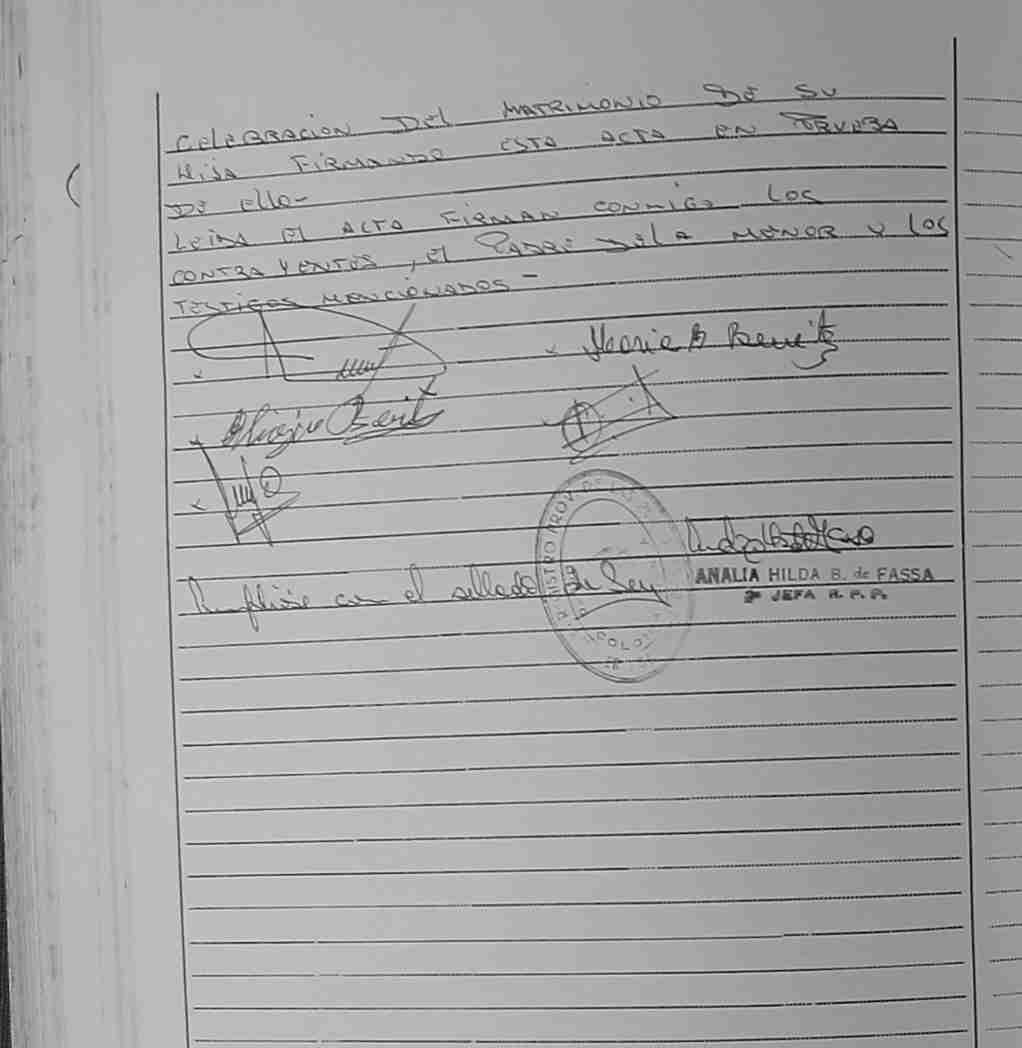 CELEBRACION DEL MATRIMONIO DE SU
HIJA FIRMANDO ESTA ACTA EN PRUEBA
DE ELLO-
LEIDA EL ACTA FIRMAN CONMIGO LOS
CONTRAYENTES, EL PADRE DE LA MENOR Y LOS
TESTIGOS MENCIONADOS-
Maria B Benitz
Benit
con el sellado de Ley
ANALIA HILDA B. de FASSA
JEFA R. P. P.